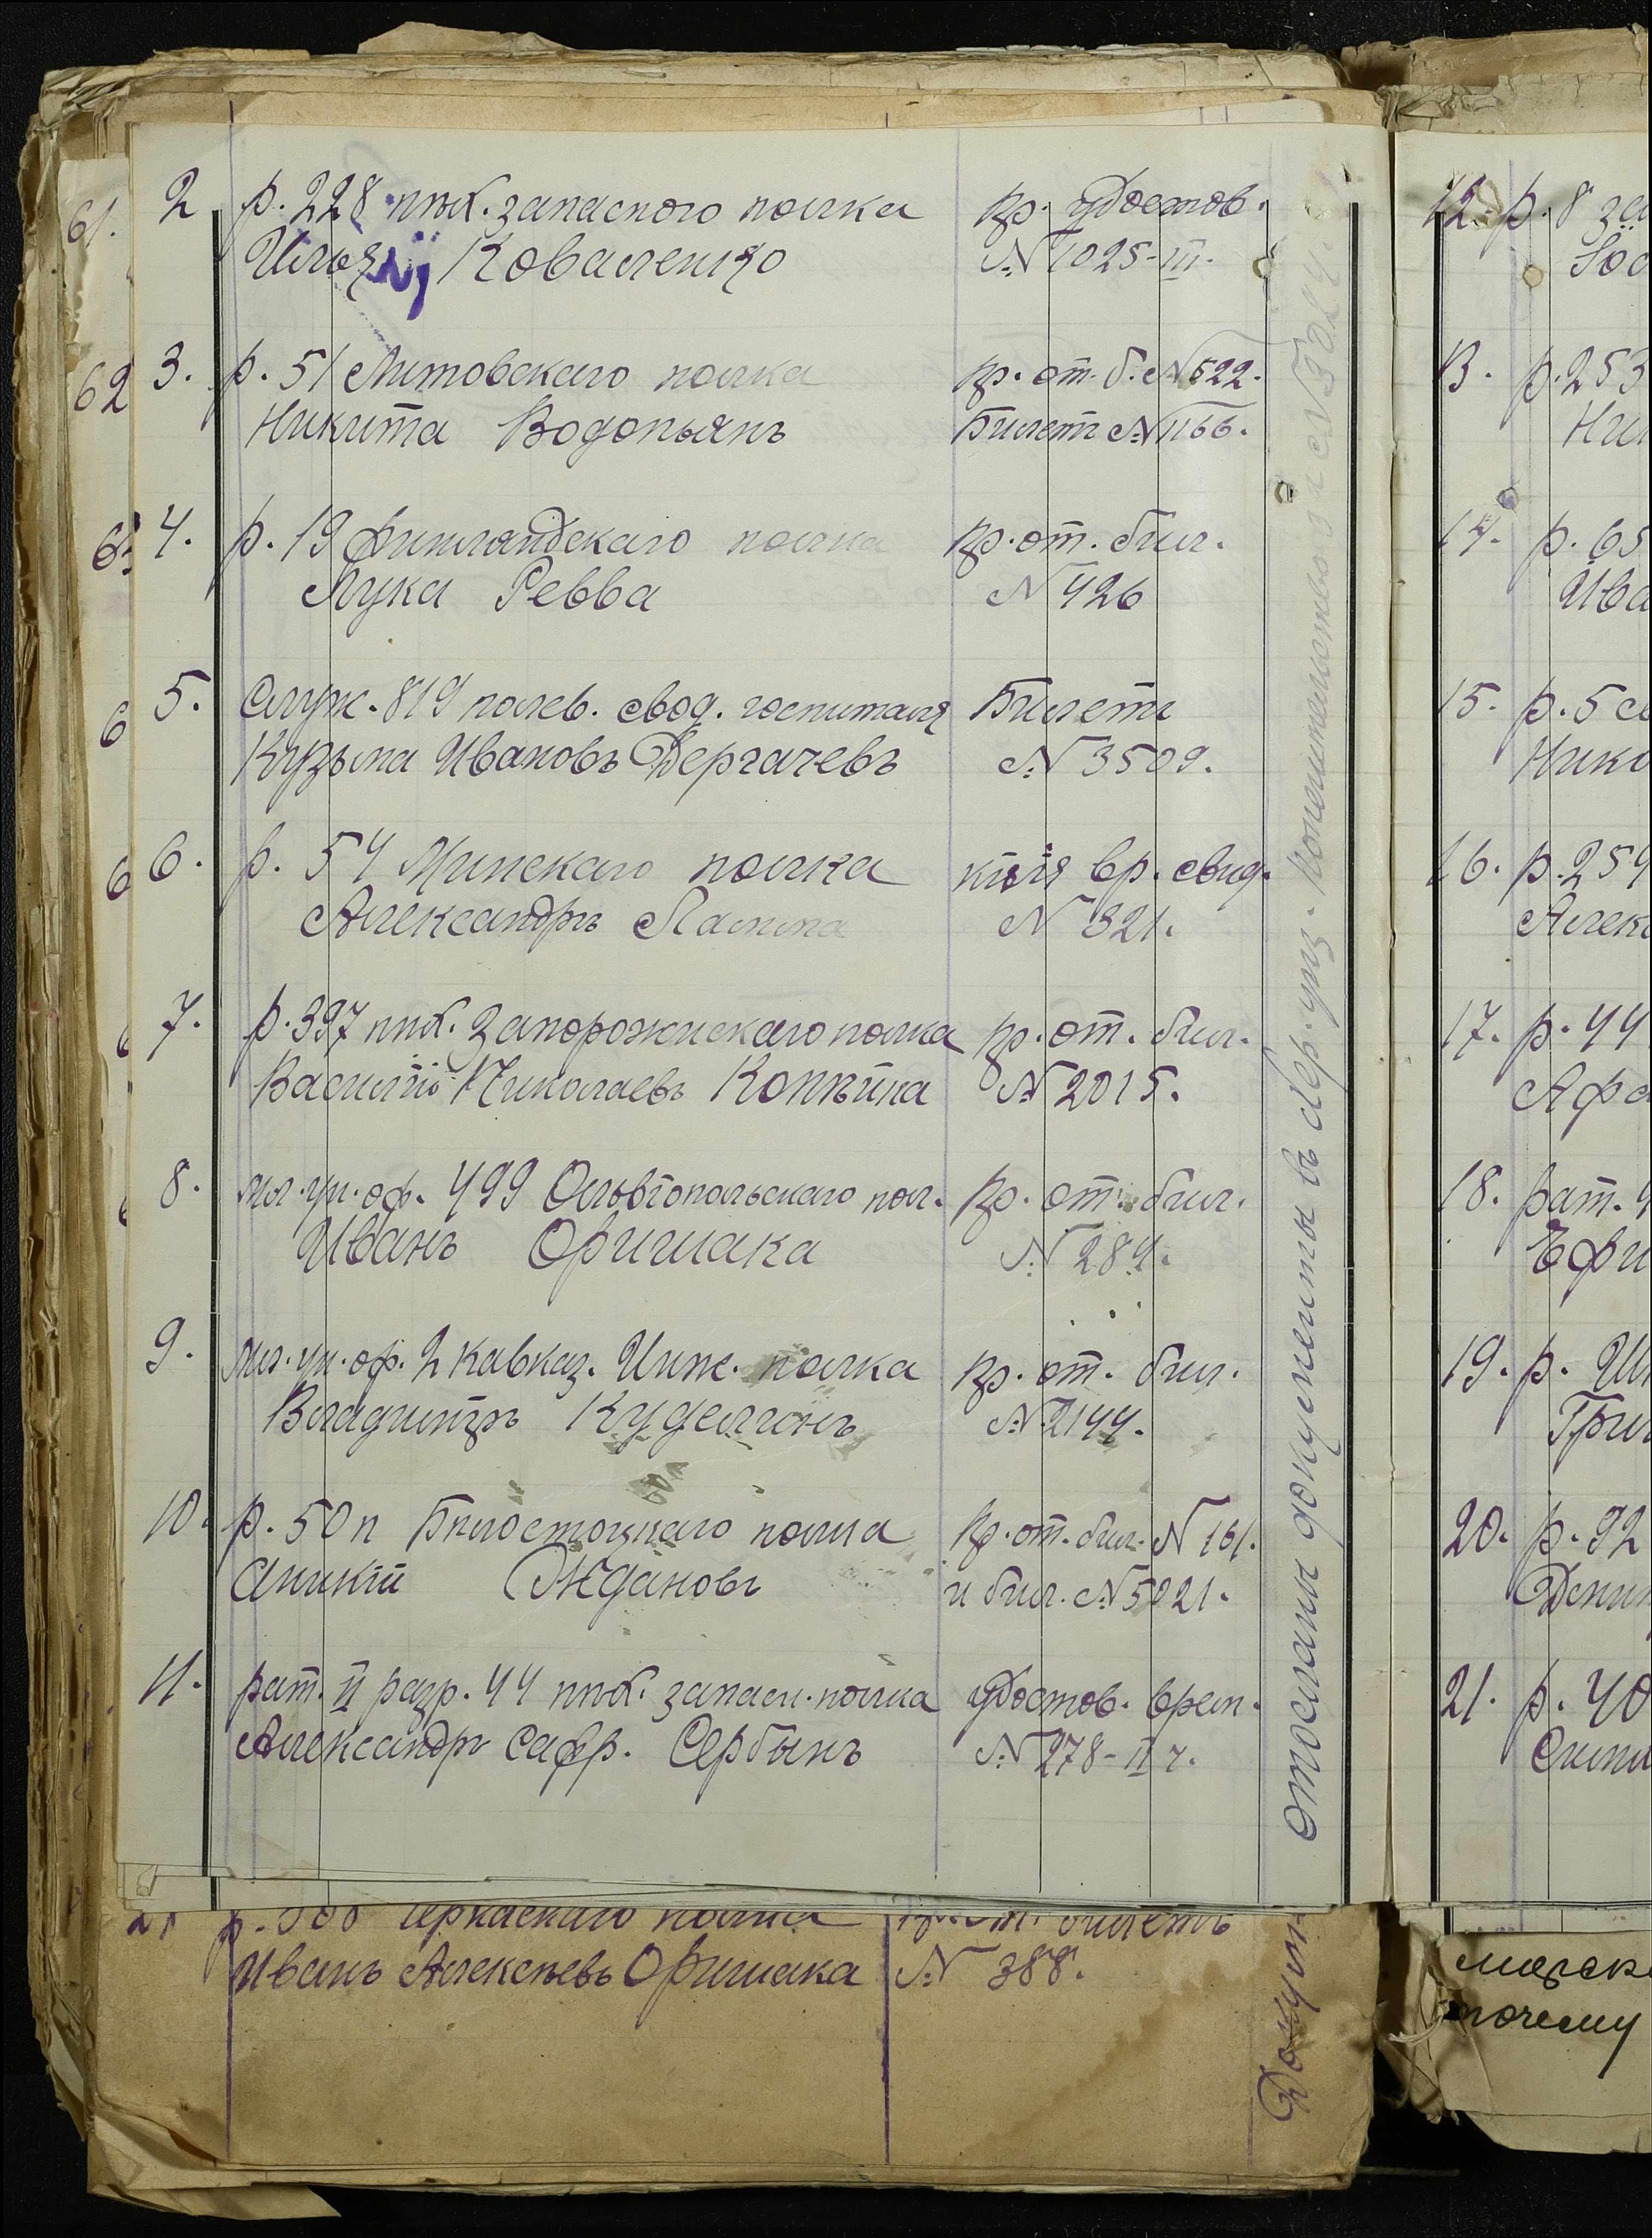 2 р. 228 пѣх. запасного полка
Илья Коваленко
кр. удостов.
№ 1025-III.
3. р. 51 Литовскаго полка
Никита Водопьянъ
кр. от. б. № 522.
Билетъ № 1166.
4. р. 19 Финляндскаго полка
Лука Ревва
кр. от. бил.
№ 426
5. Служ. 819 полев. свод. госпиталя
Кузьма Ивановъ Дергачевъ
Билетъ
№ 3509.
6. р. 54 Минскаго полка
Александръ
вр. свид.
№ 321.
7. р. 397 пѣх. Запорожискаго полка
Василій Николаевъ
кр. от. бил.
№ 2015.
8. мл. ун. оф. 499 Ольвіопольскаго пол.
Иванъ Оришака
кр. от. бил.
№ 284.
9. мл. ун. оф. 2 Кавказ. Инж. полка
Владиміръ
кр. от. бил.
№ 2144.
10. р. 50 п Бѣлостоцкаго полка
Аникій Ждановъ
кр. от. бил. № 161.
и бил. № 5021.
11. рат. II разр. 44 пѣх. запасн. полка
Александръ Сафр. Сербынъ
удостов. врем.
№ 278-II ч.
отосланы документы въ
Черкаскаго полка билетъ
Иванъ Алексѣевъ Оришака № 388.
61.
62
12. р. 8
13. р. 253
14. р. 65
15. р. 5
16. р. 254
17. р. 44
18. рат.
19. р.
20. р. 92
21. р. 40
почему